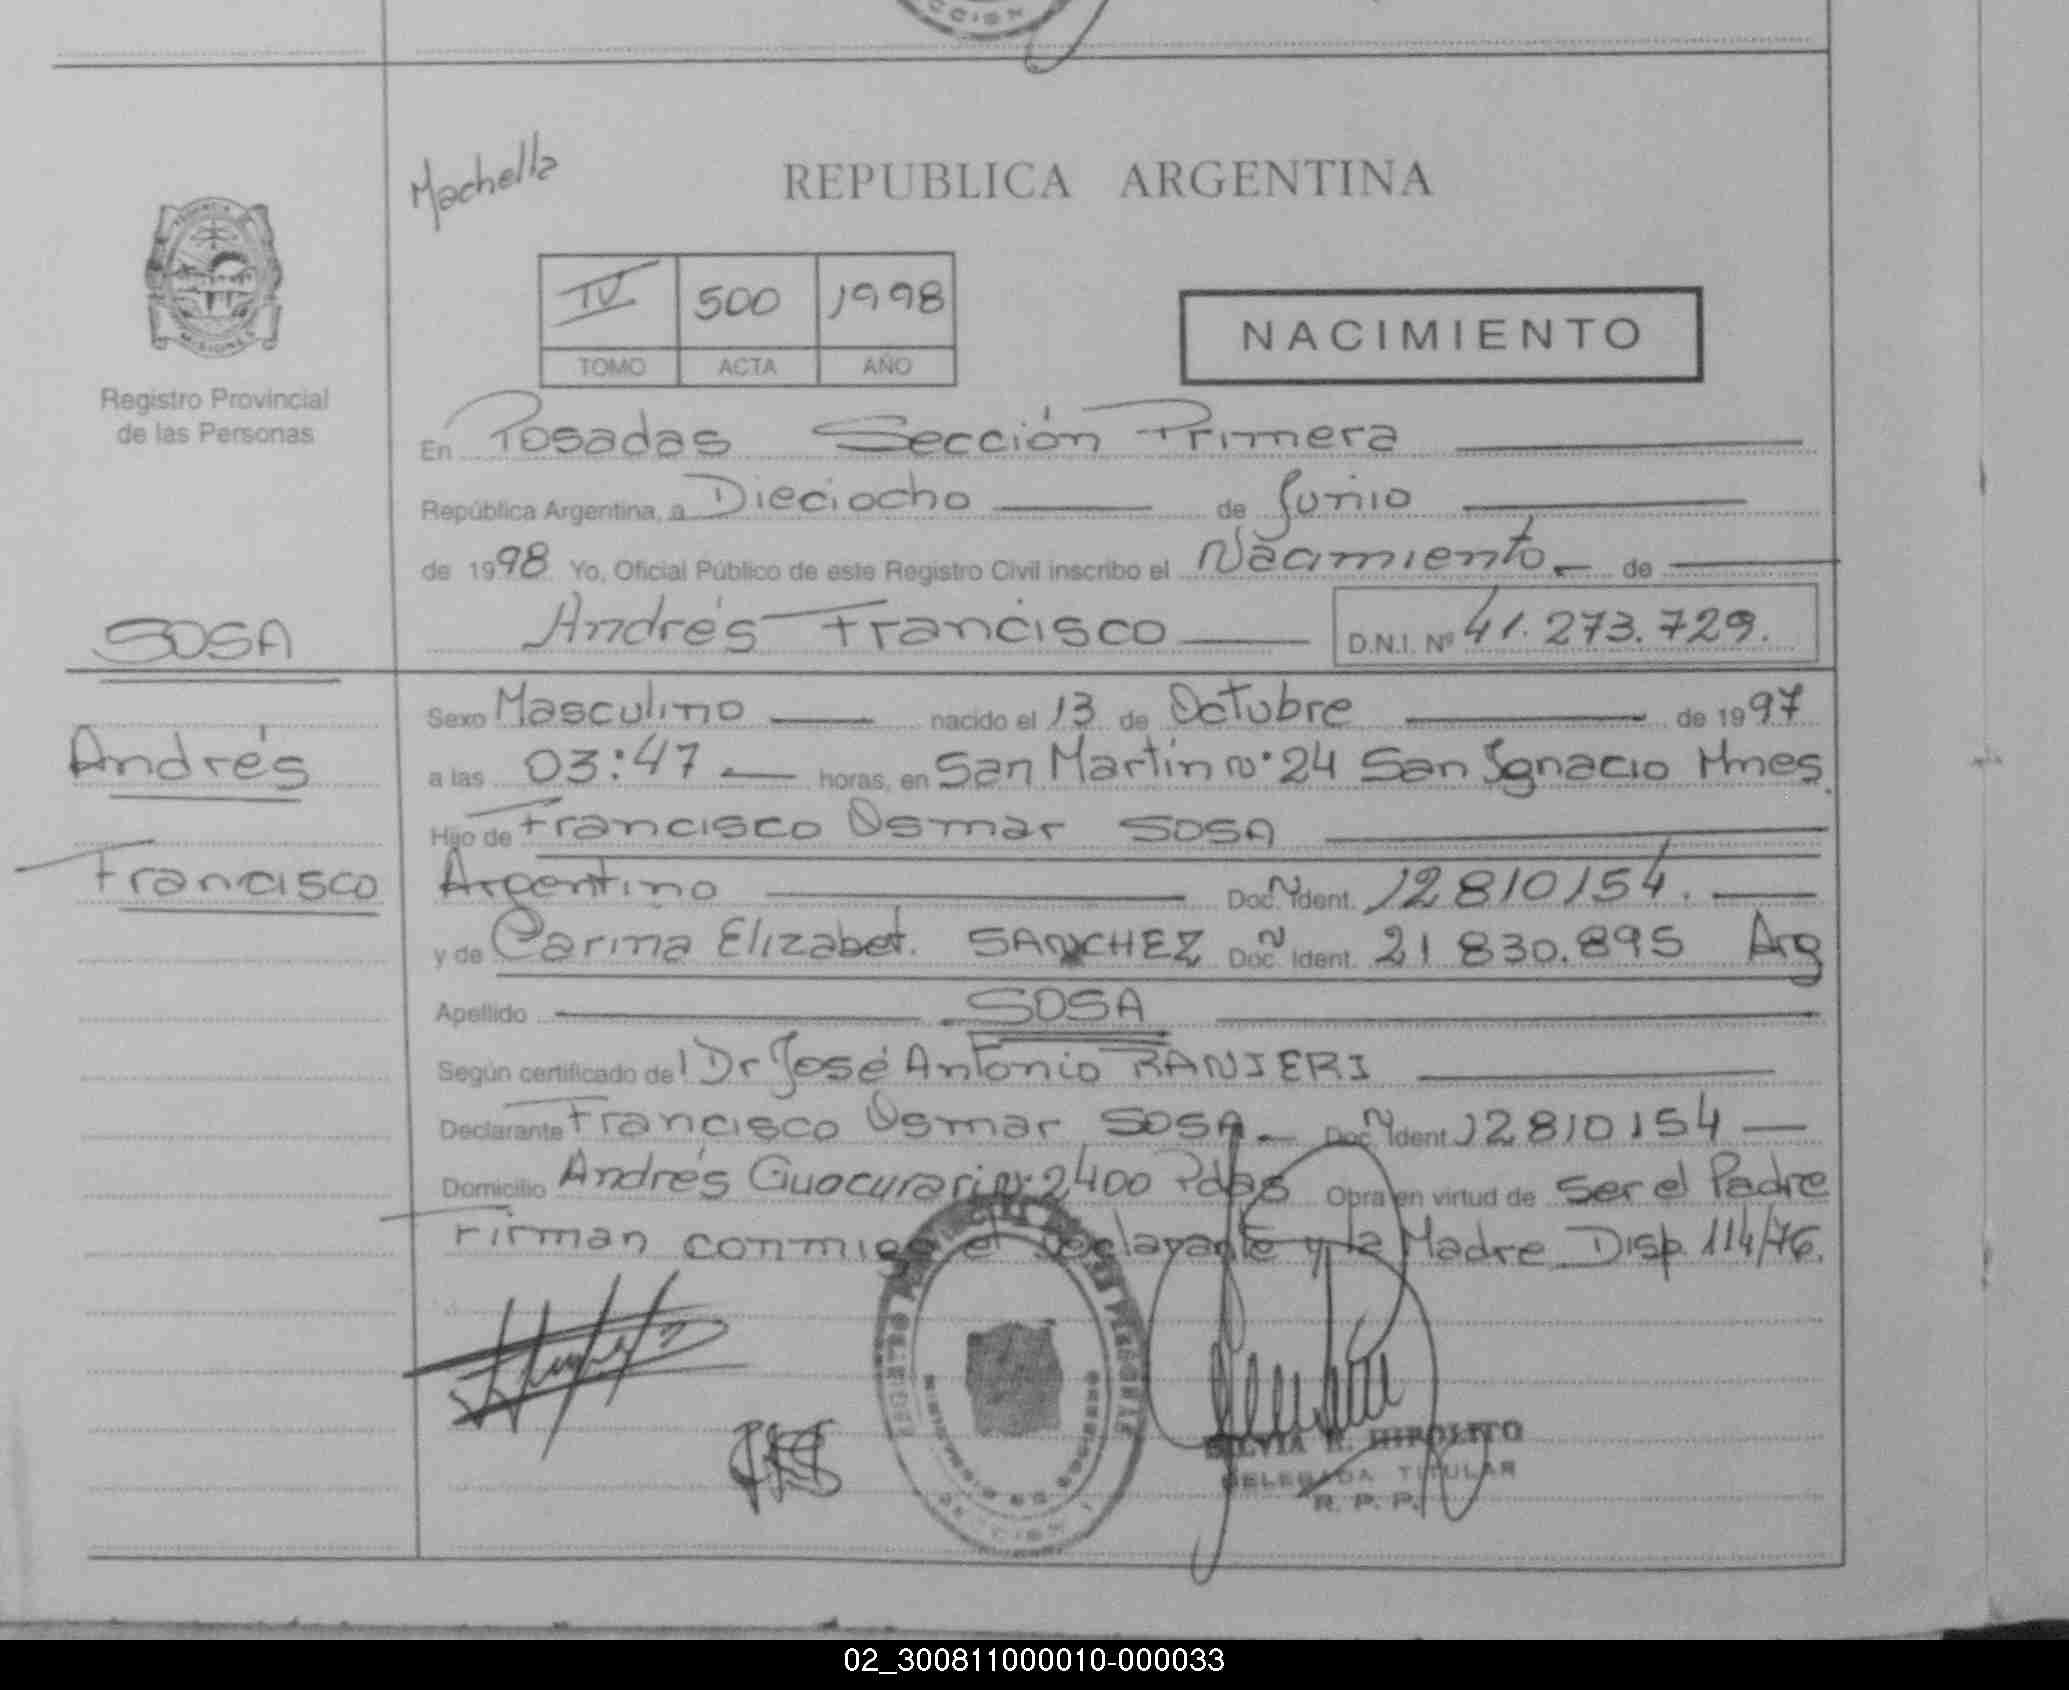 CCION
Machella
REPUBLICA ARGENTINA
IV 500 1998
TOMO ACTA AÑO
NACIMIENTO
MISIONES
Registro Provincial
de las Personas
En Posadas Sección Primera
República Argentina, a Dieciocho de Junio
de 1998 Yo, Oficial Público de este Registro Civil inscribo el Nacimiento de
SOSA
Andrés Francisco D.N.I. Nº 41.273.729.
Sexo Masculino nacido el 13 de Octubre de 1997
Andrés
a las 03:47 horas, en San Martín Nº 24 San Ignacio Mnes.
Hijo de Francisco Osmar SOSA
Francisco
Argentino Doc. Ident. 12810154.
y de Carina Elizabet. SANCHEZ Doc. Ident. 21830.895 Arg
Apellido SOSA
Según certificado del Dr José Antonio RANIERI
Declarante Francisco Osmar SOSA. Doc. Ident. 12810154
Domicilio Andrés Guacurari Nº 2400 Pdas Obra en virtud de Ser el Padre
Firman conmigo el Declarante y la Madre Disp. 114/76.
SILVIA R. HIPOLITO
DELEGADA TITULAR
R. P. P.
02_300811000010-000033